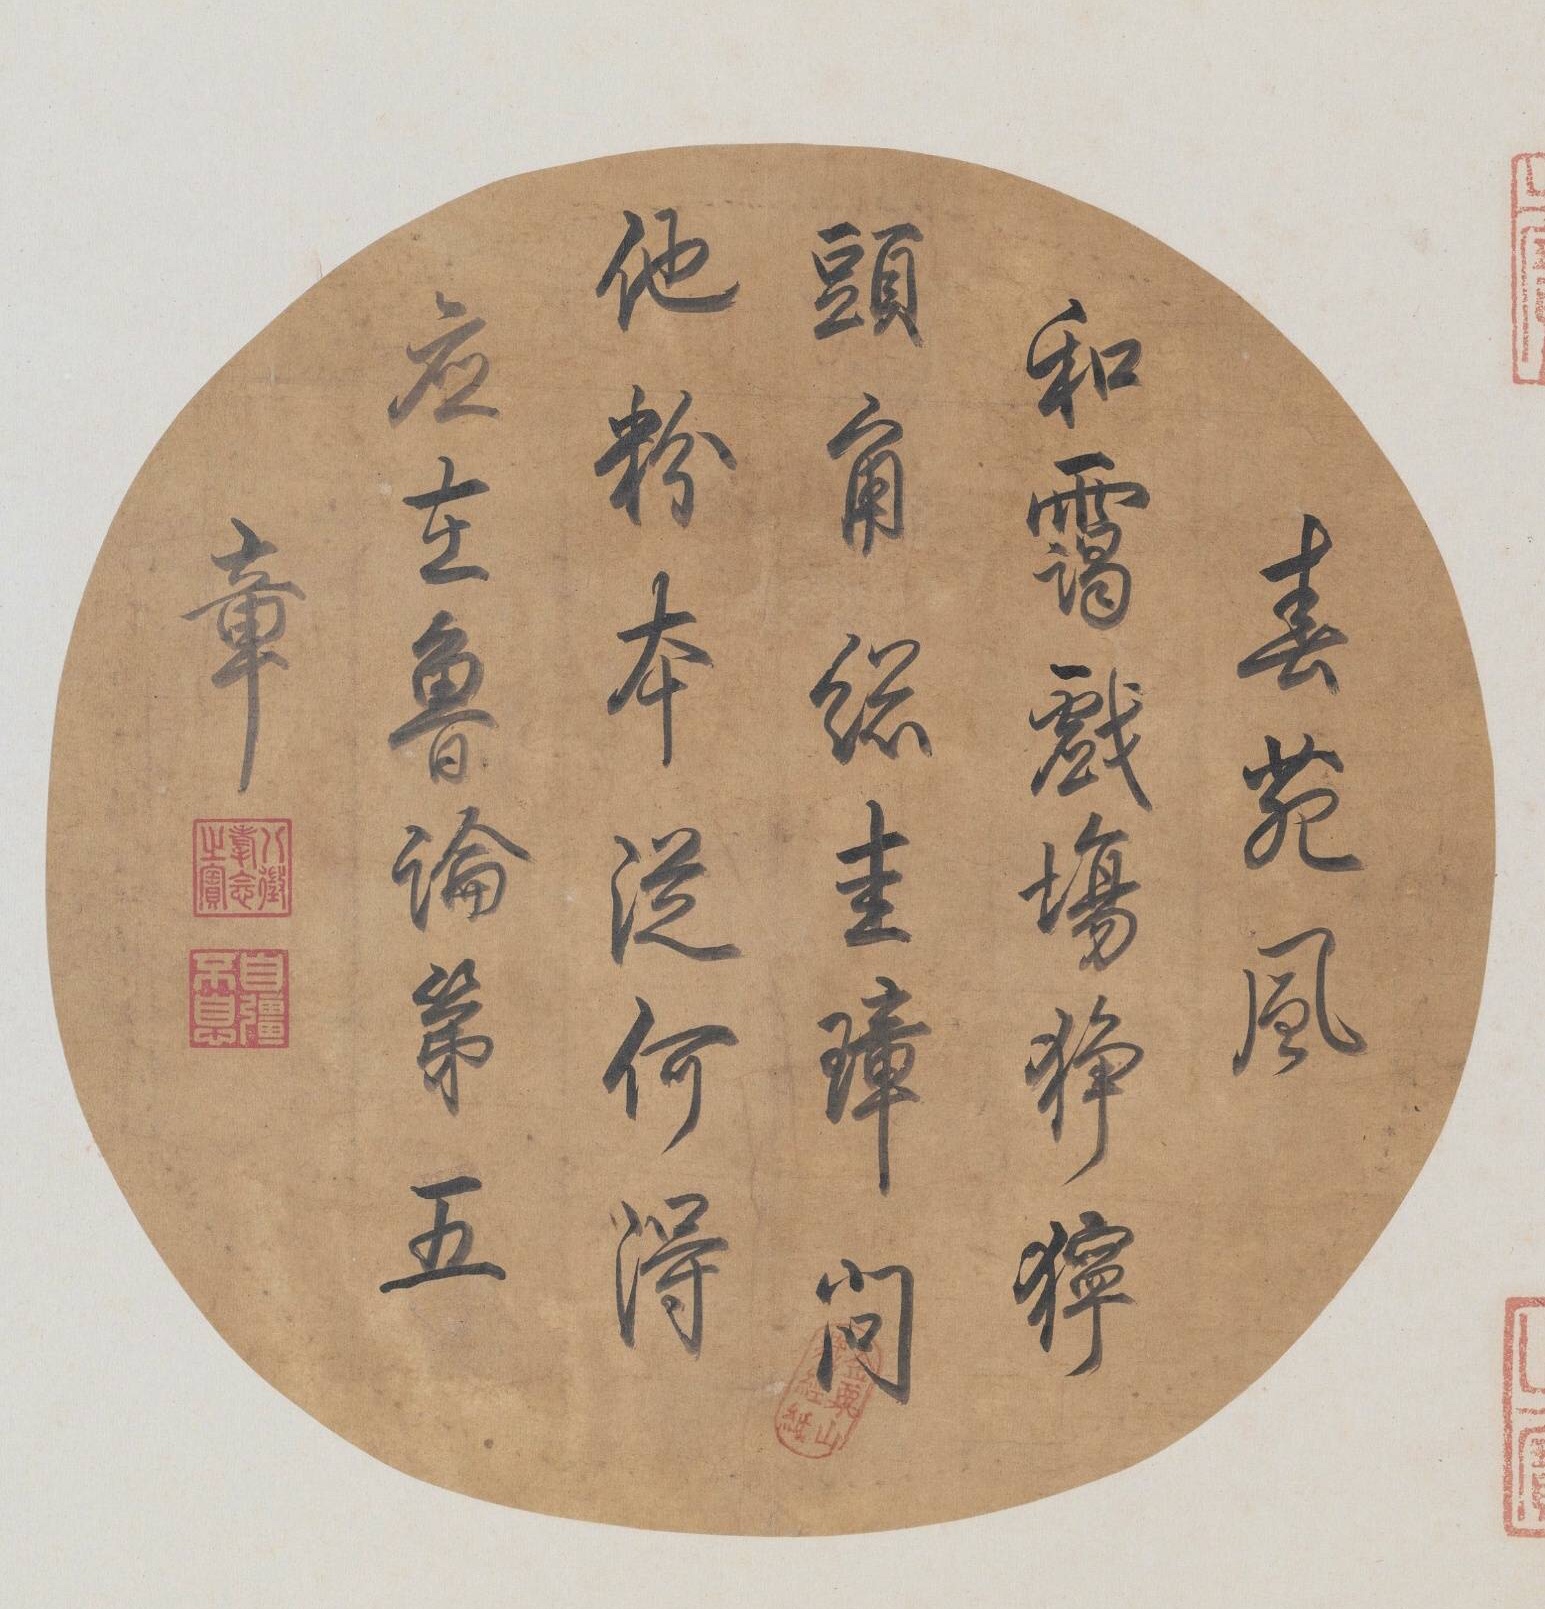 春苑風
和靄戲場猙獰
頭角總圭璋問
他粉本從何得
應在魯論第五
章
八徵耄念之寶
自彊不息
金粟山藏經紙